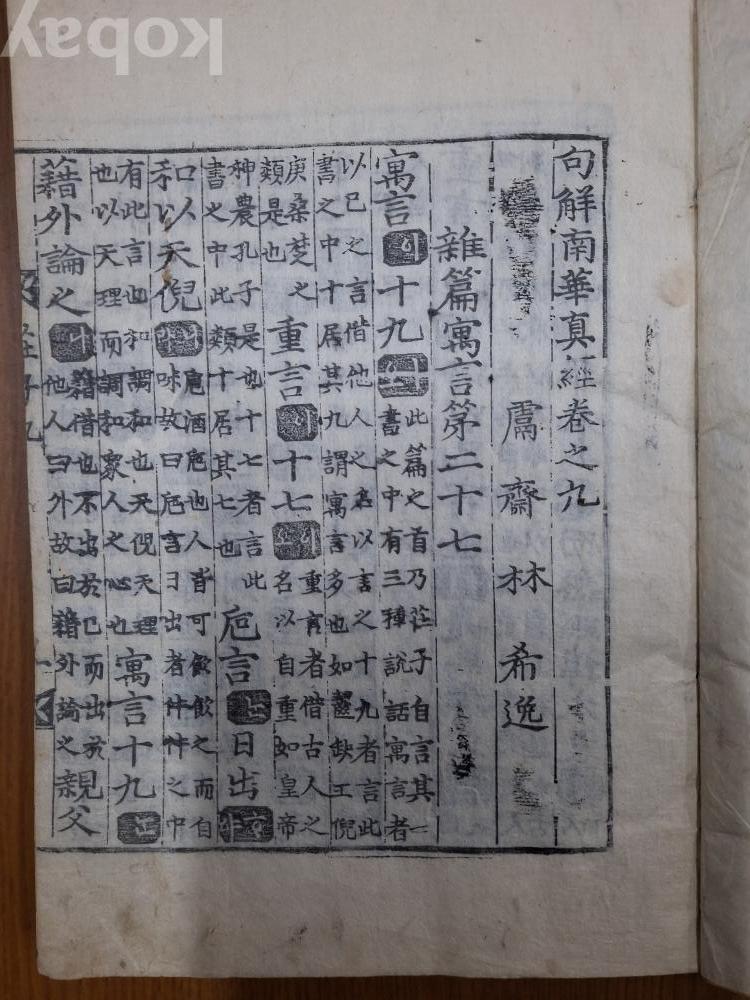 句解南華真經卷之九
鬳齋林希逸
雜篇寓言苐二十七
寓言十九
此篇之首乃莊子自言其一
書之中有三種說話寓言者
以己之言借他人之名以言之十九者言此
書之中十居其九謂寓言多也如齧缺王倪
庚桑楚之
類是也
重言十七
重言者借古人之
名以自重如皇帝
神農孔子是也十七者言此
書之中此類十居其七也
巵言日出
和以天倪
巵酒巵也人皆可飮飮之而自
味故曰巵言日出者件件之中
有此言也和調和也天倪天理
也以天理而調和衆人之心也
寓言十九
藉外論之
藉借也不出於己而出於
他人曰外故曰藉外論之
親父
莊子九
kobay